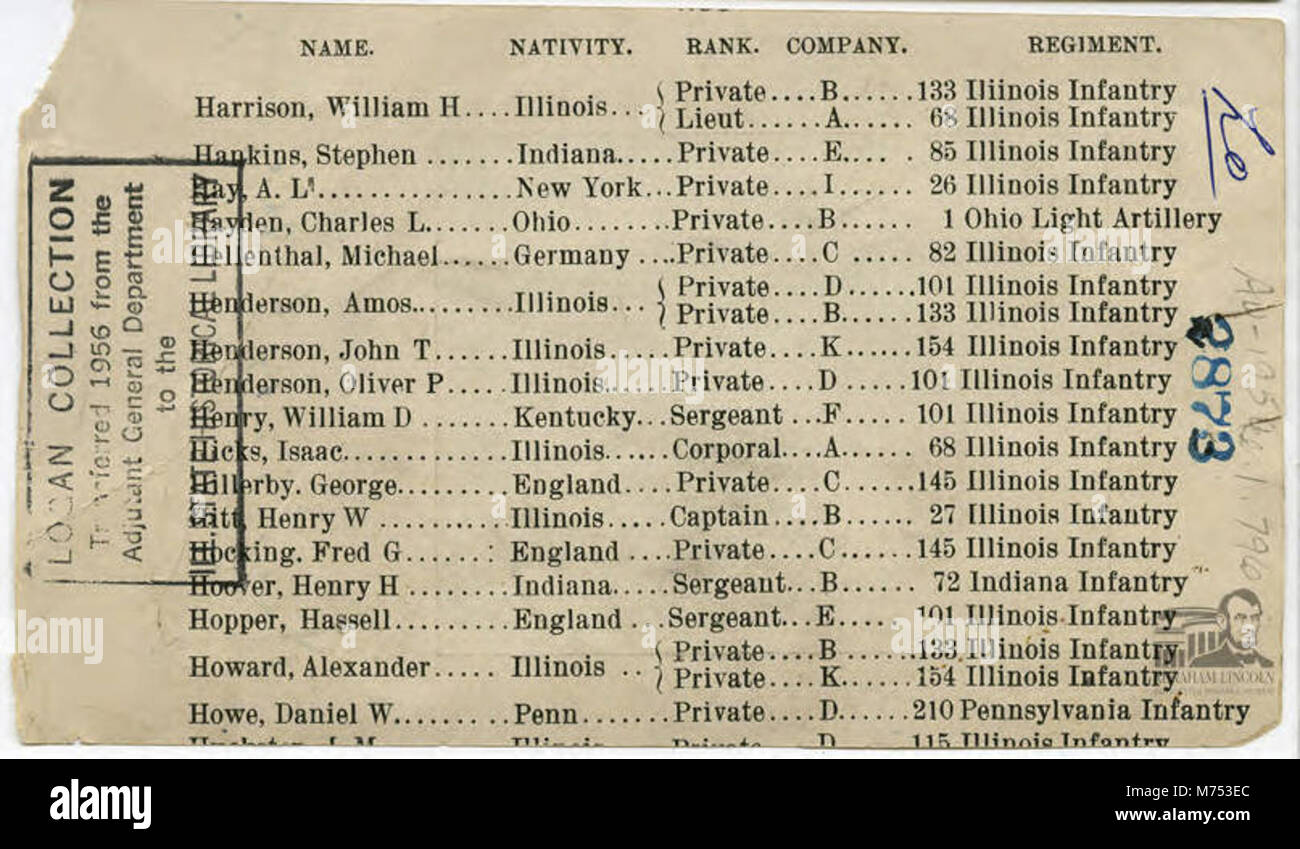 NAME. NATIVITY. RANK. COMPANY. REGIMENT.
Harrison, William H.... Illinois... { Private....B......133 Iliinois Infantry
Lieut......A...... 68 Illinois Infantry
Hankins, Stephen .......Indiana.....Private....E.... . 85 Illinois Infantry
Hay, A. L...............New York...Private....I...... 26 Illinois Infantry
Hayden, Charles L.......Ohio........Private....B...... 1 Ohio Light Artillery
Hellenthal, Michael......Germany ....Private....C ..... 82 Illinois Infantry
Henderson, Amos.........Illinois... { Private....D......101 Illinois Infantry
Private....B......133 Illinois Infantry
Henderson, John T......Illinois.....Private....K......154 Illinois Infantry
Henderson, Oliver P.....Illinois.....Private....D ......101 Illinois Infantry
Henry, William D .......Kentucky...Sergeant ...F......101 Illinois Infantry
Hicks, Isaac.............Illinois......Corporal....A...... 68 Illinois Infantry
Hillerby. George.........England....Private....C......145 Illinois Infantry
Hitt, Henry W ..........Illinois.....Captain....B...... 27 Illinois Infantry
Hocking. Fred G......: England ....Private....C......145 Illinois Infantry
Hoover, Henry H ........Indiana.....Sergeant...B...... 72 Indiana Infantry
Hopper, Hassell..........England ...Sergeant...E......101 Illinois Infantry
Howard, Alexander..... Illinois .. { Private....B ......133 Illinois Infantry
Private....K......154 Illinois Infantry
Howe, Daniel W..........Penn.......Private....D......210 Pennsylvania Infantry
Illinois Private D 115 Illinois Infantry
LOGAN COLLECTION
Transferred 1956 from the
Adjutant General Department
to the
ILL. STATE HISTORICAL LIBRARY
2873
ABRAHAM LINCOLN
alamy
alamy
Image ID: M753EC
www.alamy.com